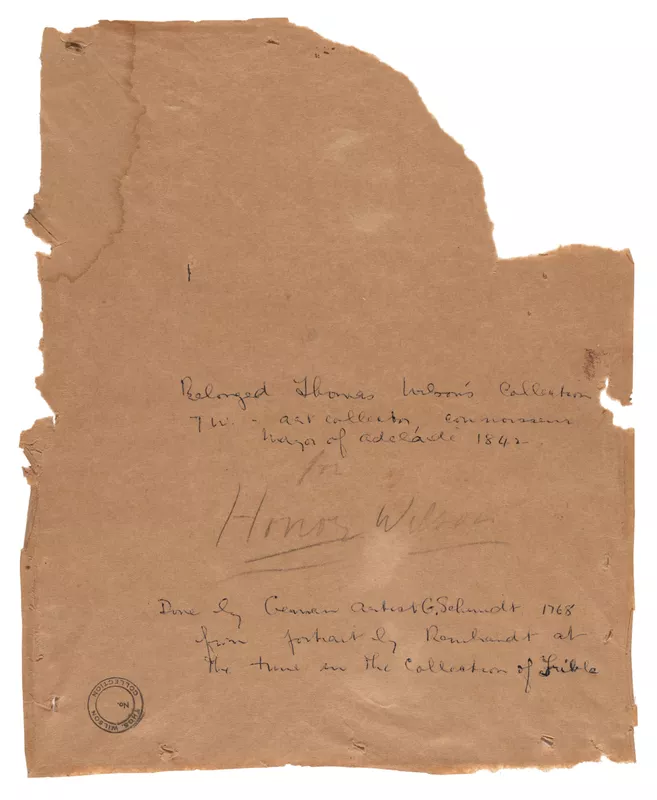 Belonged Thomas Wilson's Collection
T W. - art collector, connoisseur
Mayor of Adelaide 1842
for
Honor Wilson
Done by German Artist G. Schmidt 1768
from portrait by Rembrandt at
the time in the Collection of Tribble
THOS WILSON
COLLECTION
No.